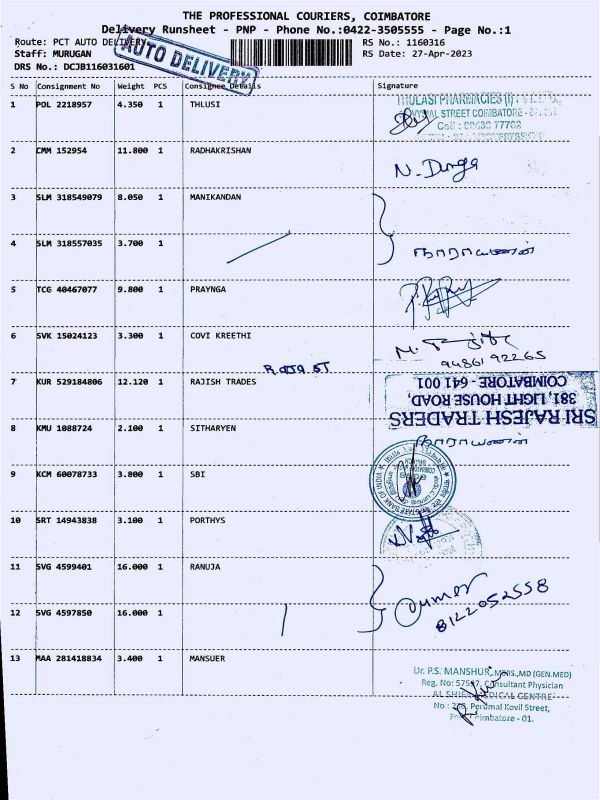 THE PROFESSIONAL COURIERS, COIMBATORE
Delivery Runsheet - PNP - Phone No.:0422-3505555 - Page No.:1
Route: PCT AUTO DELIVERY
RS No.: 1160316
Staff: MURUGAN
RS Date: 27-Apr-2023
DRS No.: DCJB116031601
AUTO DELIVERY
S No Consignment No Weight PCS Consignee Details Signature
1 POL 2218957 4.350 1 THLUSI
THULASI PHARMACIES (I)
STREET COIMBATORE
Cell : 98430 77702
2 CMM 152954 11.800 1 RADHAKRISHAN
N. Durga
3 SLM 318549079 8.050 1 MANIKANDAN
4 SLM 318557035 3.700 1
நாராயணன்
5 TCG 40467077 9.800 1 PRAYNGA
6 SVK 15024123 3.300 1 COVI KREETHI
9486192265
7 KUR 529184806 12.120 1 RAJISH TRADES
SRI RAJESH TRADERS
381, LIGHT HOUSE ROAD,
COIMBATORE - 641 001
8 KMU 1088724 2.100 1 SITHARYEN
நாராயணன்
9 KCM 60078733 3.800 1 SBI
STATE BANK OF INDIA
10 SRT 14943838 3.100 1 PORTHYS
11 SVG 4599401 16.000 1 RANUJA
8122052558
12 SVG 4597850 16.000 1
13 MAA 281418834 3.400 1 MANSUER
Dr. P.S. MANSHUR, MBBS.,MD (GEN.MED)
Reg. No: 57597, Consultant Physician
AL SHIFA MEDICAL CENTRE
No : Perumal Kovil Street,
Coimbatore - 01.